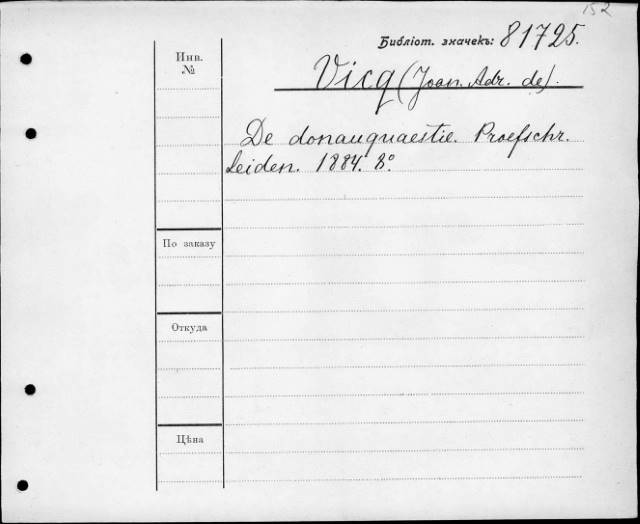 152
Библіот. значекъ: 81725.
Инв.
№
Vicq (Joan. Adr. de).
De donauquaestie. Proefschr.
Leiden. 1884. 8°.
По заказу
Откуда
Цѣна